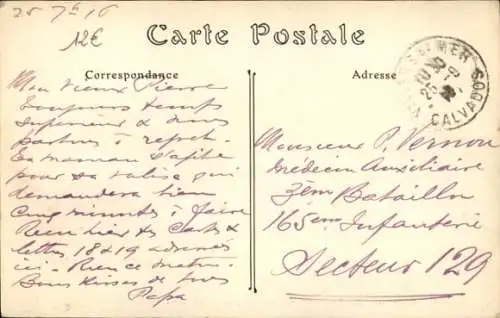 25 7bre 16
12€
Carte Postale
Correspondance
Adresse
S MER
CALVADOS
Mon vieux Pierre
Toujours temps
superieur &
partons à
Ta maman s'apite
pour sa valise qui
demandera bien
Cinq minutes à faire
Reçu hier tes Cartes &
lettres 18 & 19 adressées
ici. Rien ce matin.
Bons kisses de tous
Papa
Monsieur P. Vernon
Médecin Auxiliaire
3ème Bataillon
165em Infanterie
Secteur 129